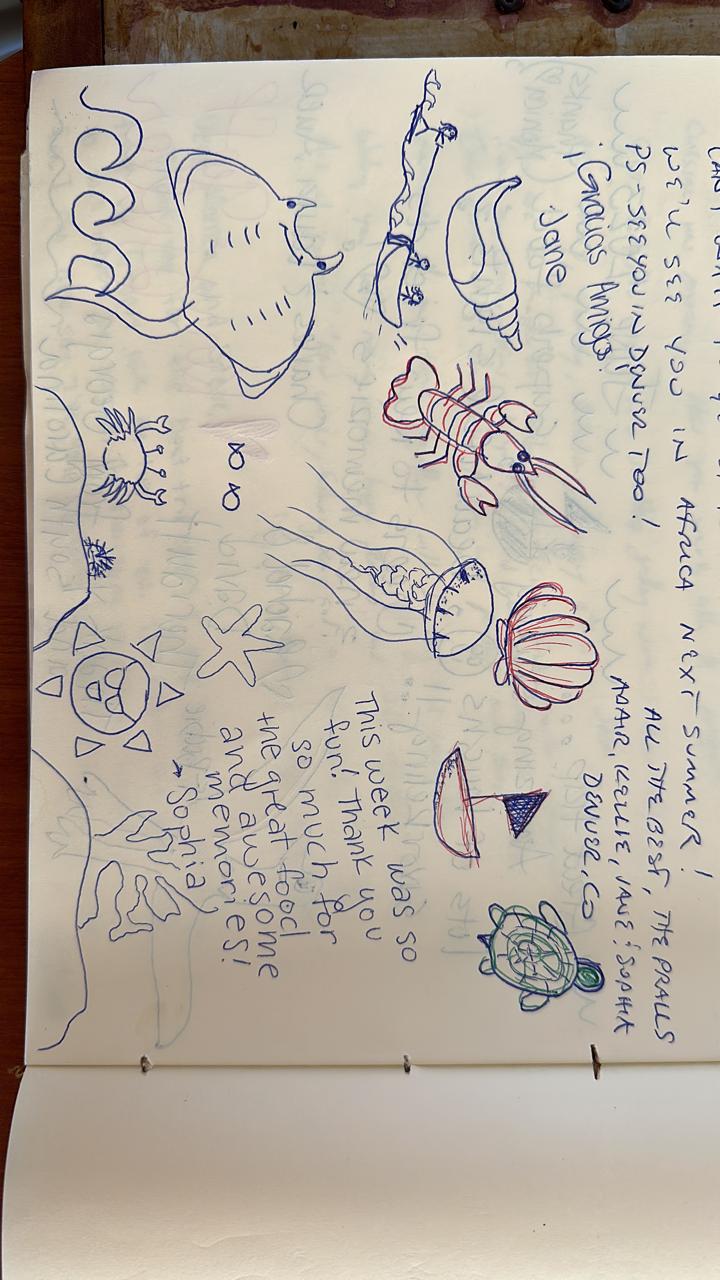 WE'LL SEE YOU IN AFRICA NEXT SUMMER!
PS - SEE YOU IN DENVER TOO!
ALL THE BEST, THE PRALLS
ADAIR, KELLIE, JANE & SOPHIA
DENVER, CO
¡Gracias Amigo!
Jane
This week was so
fun! Thank you
so much for
the great food
and awesome
memories!
→ Sophia